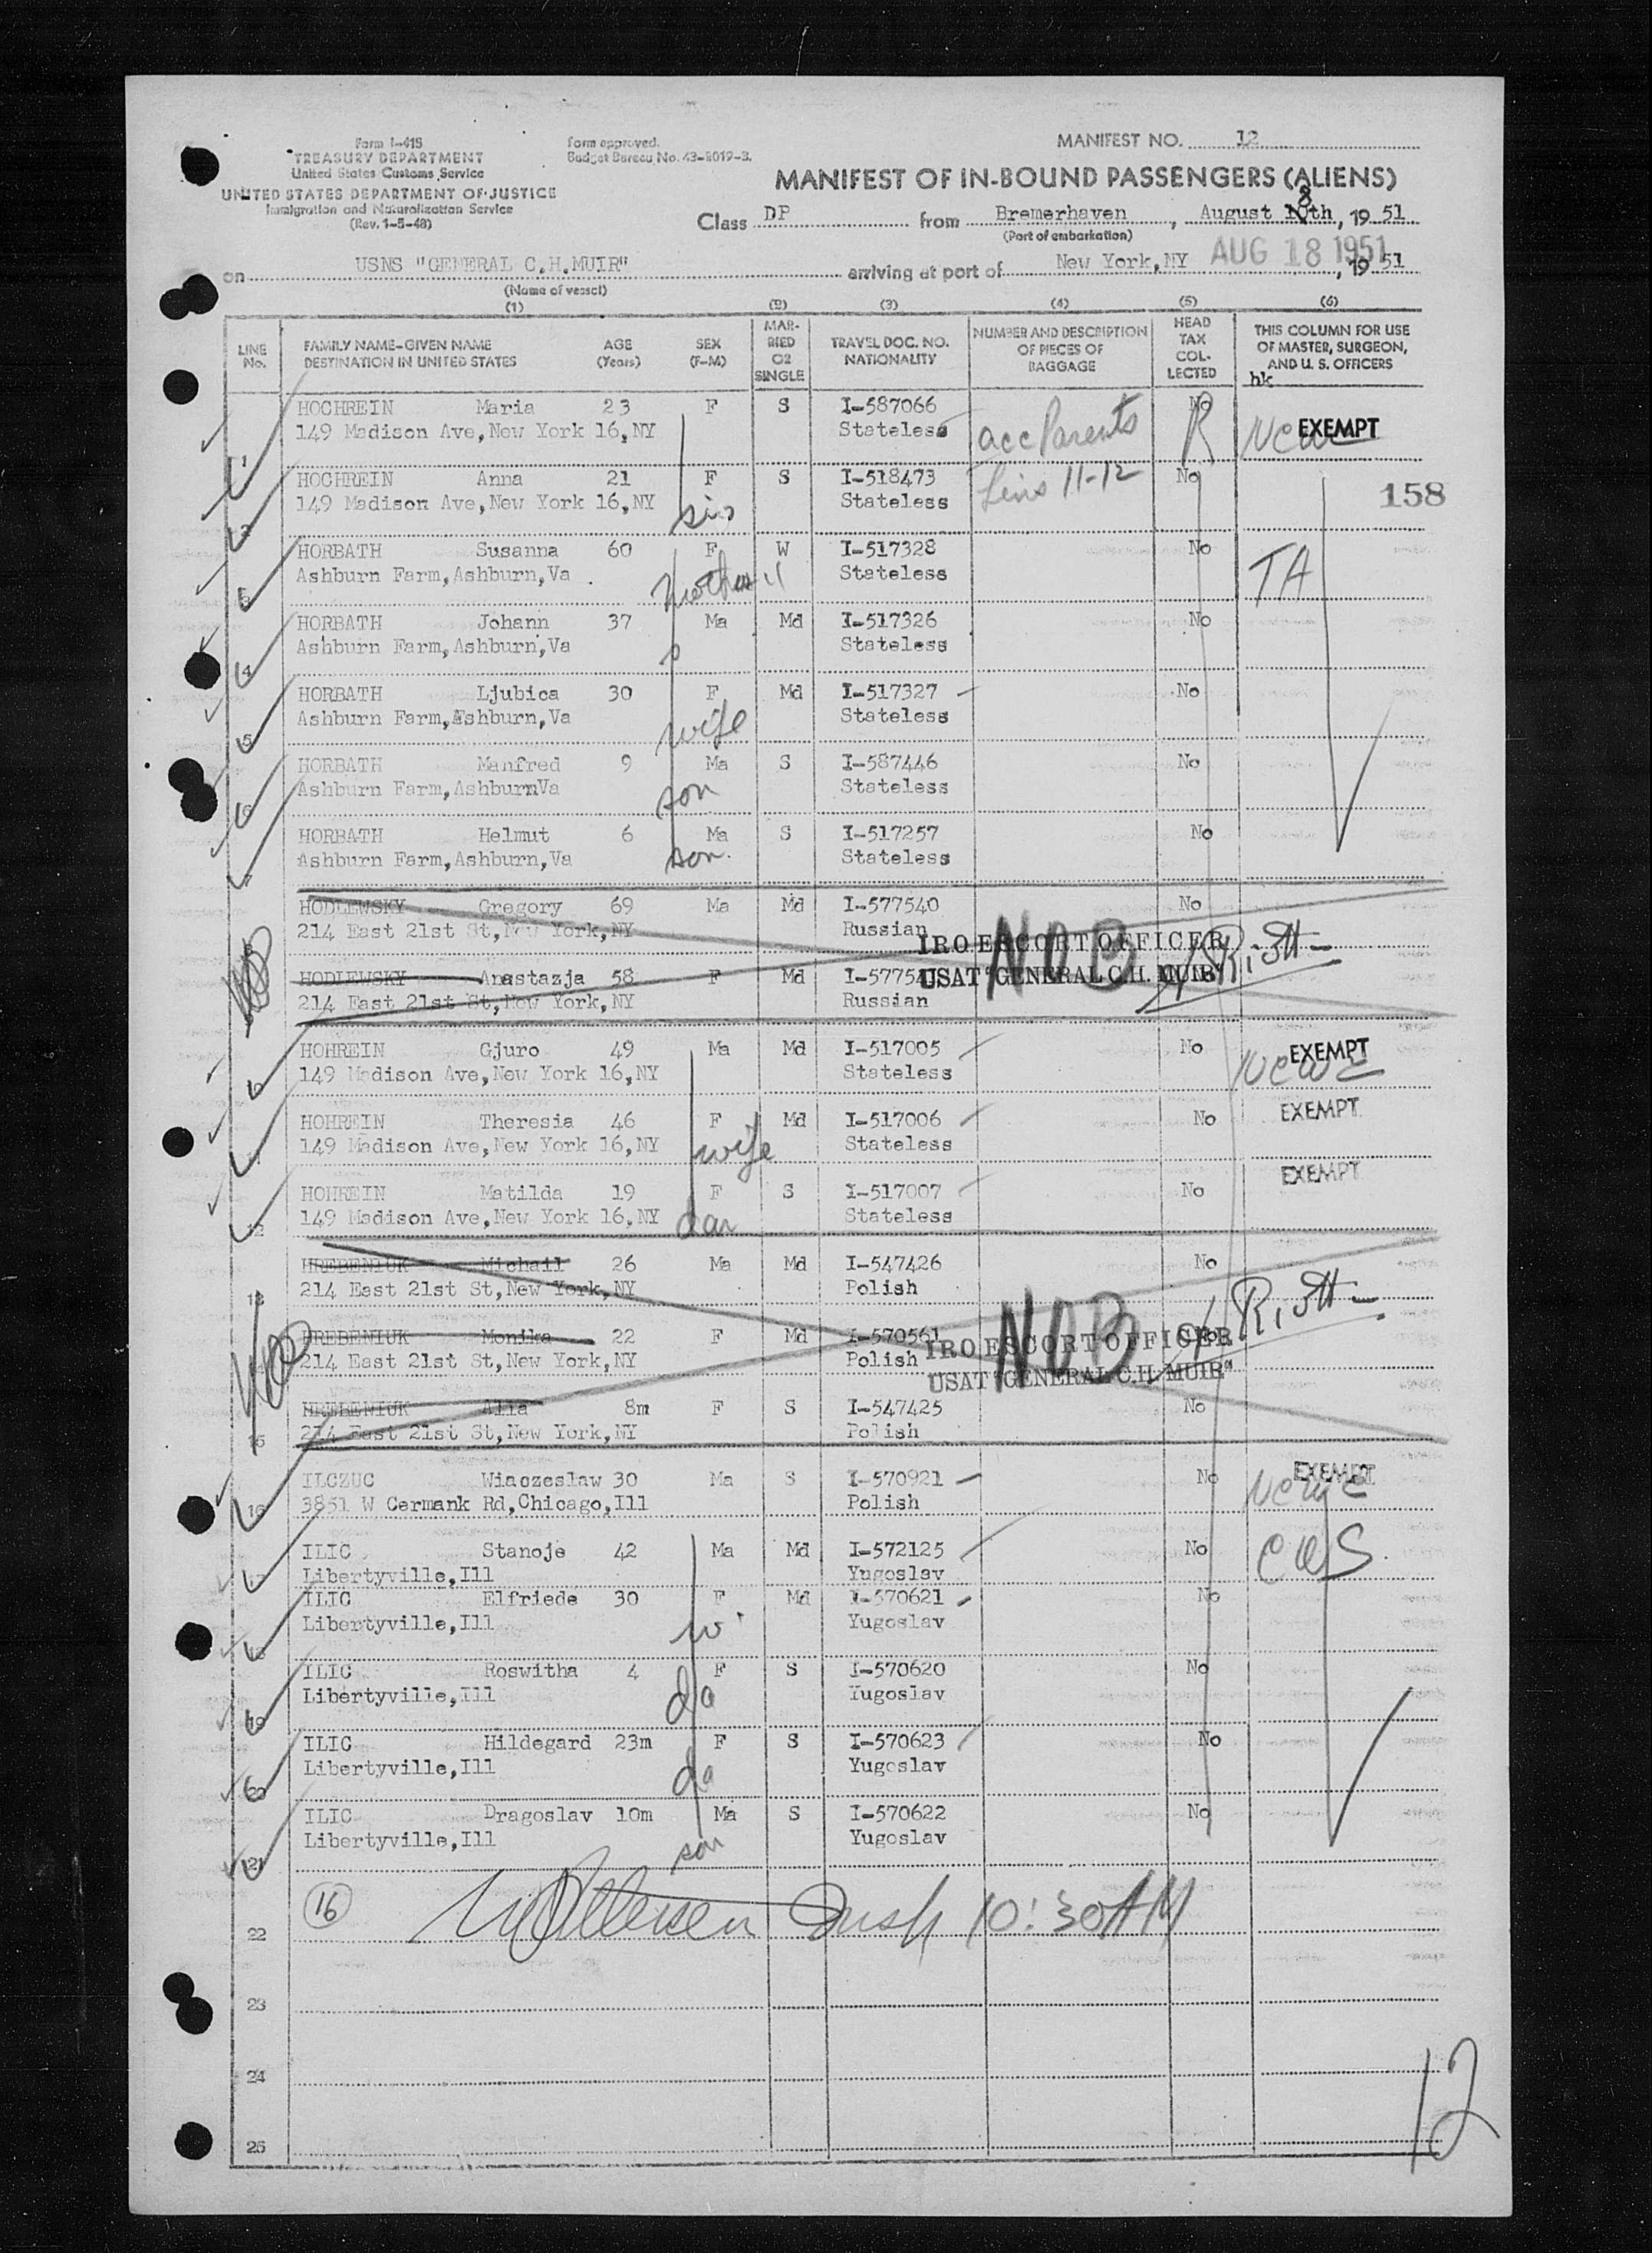 Form I-418
TREASURY DEPARTMENT
United States Customs Service
UNITED STATES DEPARTMENT OF JUSTICE
Immigration and Naturalization Service
(Rev. 1-5-48)
Form approved.
Budget Bureau No. 43-R019-3.
MANIFEST NO. 12
MANIFEST OF IN-BOUND PASSENGERS (ALIENS)
Class DP from Bremerhaven, August 10th, 19 51
8
(Port of embarkation)
on USNS "GENERAL C.H.MUIR" arriving at port of New York,NY AUG 18 1951, 19 51
(Name of vessel)
(1) (2) (3) (4) (5) (6)
LINE No. FAMILY NAME-GIVEN NAME DESTINATION IN UNITED STATES AGE (Years) SEX (F-M) MARRIED OR SINGLE TRAVEL DOC. NO. NATIONALITY NUMBER AND DESCRIPTION OF PIECES OF BAGGAGE HEAD TAX COLLECTED THIS COLUMN FOR USE OF MASTER, SURGEON, AND U. S. OFFICERS
hk
HOCHREIN Maria 23 F S I-587066 No
149 Madison Ave,New York 16,NY Stateless acc Parents EXEMPT
1
HOCHREIN Anna 21 F S I-518473 Line 11-12 No
149 Madison Ave,New York 16,NY sis Stateless 158
2
HORBATH Susanna 60 F W I-517328 No
Ashburn Farm,Ashburn,Va . Mother Stateless TA
3
HORBATH Johann 37 Ma Md I-517326 No
Ashburn Farm,Ashburn,Va s Stateless
4
HORBATH Ljubica 30 F Md I-517327 No
Ashburn Farm,Ashburn,Va wife Stateless
5
HORBATH Manfred 9 Ma S I-587446 No
Ashburn Farm,AshburnVa son Stateless
6
HORBATH Helmut 6 Ma S I-517257 No
Ashburn Farm,Ashburn,Va son Stateless
7
HODLEWSKY Gregory 69 Ma Md I-577540 No
214 East 21st St,New York,NY Russian
IRO ESCORT OFFICER
NOB
HODLEWSKY Anastazja 58 F Md I-577541
USAT "GENERAL C.H. MUIR"
214 East 21st St,New York,NY Russian
HOHREIN Gjuro 49 Ma Md I-517005 No EXEMPT
149 Madison Ave,New York 16,NY Stateless
10
HOHREIN Theresia 46 F Md I-517006 No EXEMPT
149 Madison Ave,New York 16,NY wife Stateless
11
HOHREIN Matilda 19 F S I-517007 No EXEMPT
149 Madison Ave,New York 16,NY dau Stateless
12
HREBENIUK Michail 26 Ma Md I-547426 No
214 East 21st St,New York,NY Polish
13
HREBENIUK Monika 22 F Md I-570561
IRO ESCORT OFFICER
NOB
214 East 21st St,New York,NY Polish
USAT "GENERAL C.H. MUIR"
HREBENIUK Alla 8m F S I-547425 No
214 East 21st St,New York,NY Polish
15
ILCZUC Wiaczeslaw 30 Ma S I-570921 No EXEMPT
3851 W Cermank Rd,Chicago,Ill Polish
16
ILIC Stanoje 42 Ma Md I-572125 No CWS
Libertyville,Ill Yugoslav
17
ILIC Elfriede 30 F Md I-570621 No
Libertyville,Ill wi Yugoslav
18
ILIC Roswitha 4 F S I-570620 No
Libertyville,Ill da Yugoslav
19
ILIC Hildegard 23m F S I-570623 No
Libertyville,Ill da Yugoslav
20
ILIC Dragoslav 10m Ma S I-570622 No
Libertyville,Ill son Yugoslav
21
16 Insp 10:30 AM
22
23
24
12
25